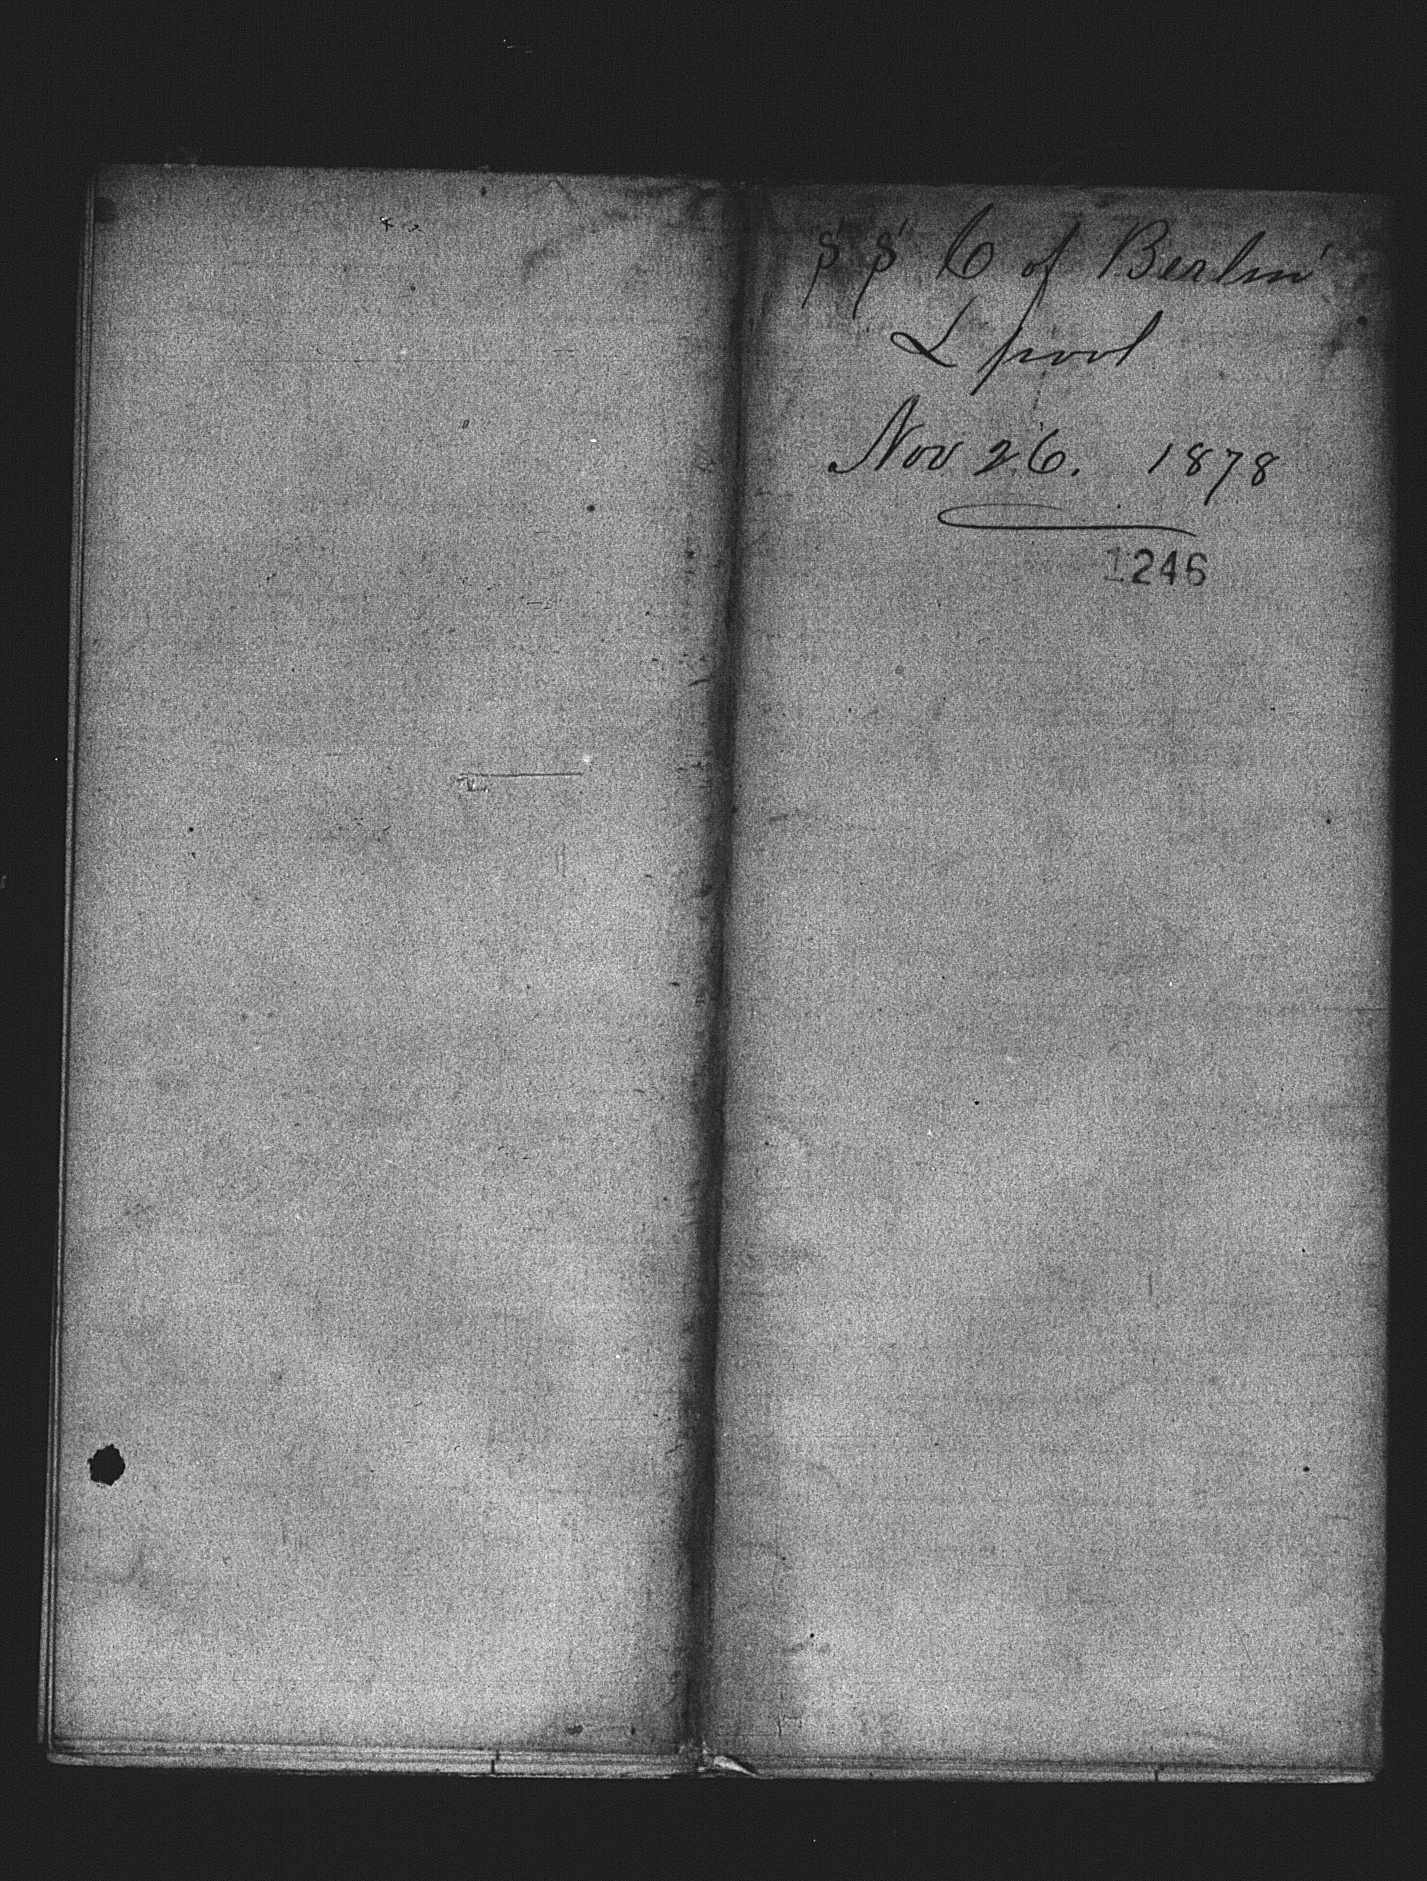 SS C of Berlin
L pool
Nov 26. 1878
1246